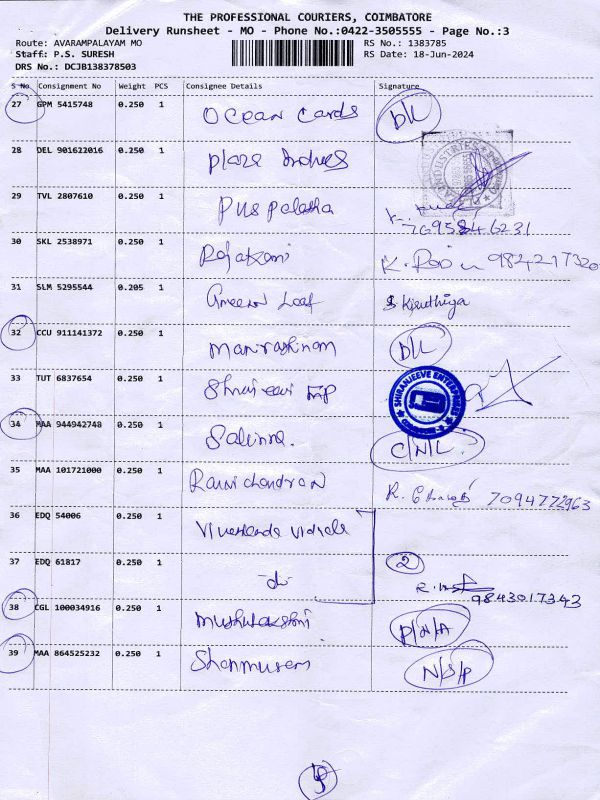 THE PROFESSIONAL COURIERS, COIMBATORE
Delivery Runsheet - MO - Phone No.:0422-3505555 - Page No.:3
Route: AVARAMPALAYAM MO RS No.: 1383785
Staff: P.S. SURESH RS Date: 18-Jun-2024
DRS No.: DCJB138378503
S No Consignment No Weight PCS Consignee Details Signature
27 GPM 5415748 0.250 1 Ocean Cards D/L
28 DEL 901622016 0.250 1 Plaza
29 TVL 2807610 0.250 1 Puspalatha
7695846231
30 SKL 2538971 0.250 1 Rajatkani K. 984217320
31 SLM 5295544 0.205 1 Green Leaf S Kiruthiga
32 CCU 911141372 0.250 1 D/L
33 TUT 6837654 0.250 1
SHIRANJEEVE ENTERPRISES
34 MAA 944942748 0.250 1 Salinna. C/N/L.
35 MAA 101721000 0.250 1 Ravichandran R. 7094772963
36 EDQ 54006 0.250 1
37 EDQ 61817 0.250 1 -do- 2
9843017343
38 CGL 100034916 0.250 1 Muthulakshmi P/N/A
39 MAA 864525232 0.250 1 N/S/P